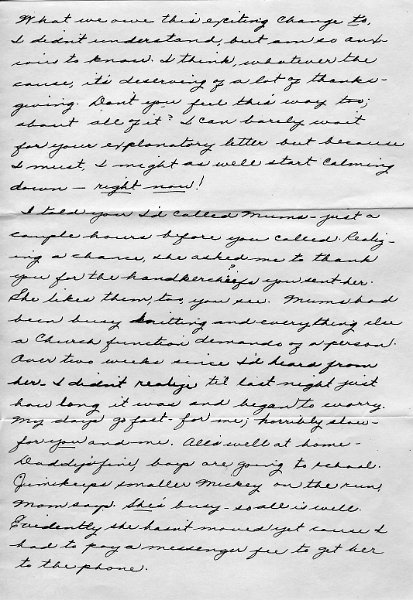 What we owe this exciting change to,
I didn't understand, but am so anx-
ious to know. I think, whatever the
cause, it's deserving of a lot of thanks-
giving. Don't you feel this way too;
about all of it? I can barely wait
for your explanatory letter but because
I must, I might as well start calming
down – right now!
I told you I'd called Mums – just a
couple hours before you called. Realiz-
ing a chance, she asked me to thank
you for the handkerchiefs you sent her.
?
She likes them, too, you see. Mums had
been busy knitting and everything else
a Church function demands of a person.
Over two weeks since I'd heard from
her – I didn't realize 'til last night just
how long it was and began to worry.
My days go fast – for me; horribly slow –
for you and me. All's well at home –
Daddy's fine, boys are going to school.
Jim keeps smaller Mickey on the run,
Mom says. She's busy – so all is well.
Evidently she hasn't moved yet cause I
had to pay a messenger fee to get her
to the phone.